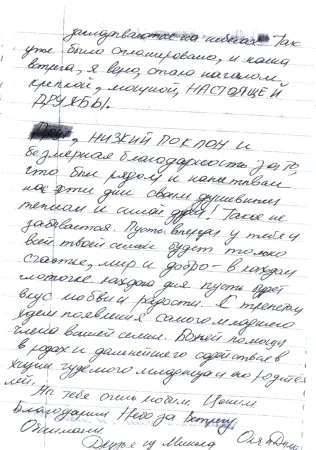 задумываются на небесах. Так
уже было спланировано, и наша
встреча, я верю, стала началом
крепкой, мощной, НАСТОЯЩЕЙ
ДРУЖБЫ.
, НИЗКИЙ ПОКЛОН и
безмерная благодарность за то,
что был рядом и напитывал
нас эти дни своим душевным
теплом и силой духа! Такое не
забывается. Пусть впереди у тебя и
всей твоей семьи будет только
счастье, мир и добро - в каждом
глоточке каждого дня пусть будет
вкус любви и радости. С трепетом
ждем появления самого младшего
члена вашей семьи. Божьей помощи
в родах и дальнейшего содействия в
жизни чудемого младенца и его родите-
лей.
Ап тебе очень любим. Ценим.
Благодарим Небо за Встречу.
Обнимаем.
Оля и Дима